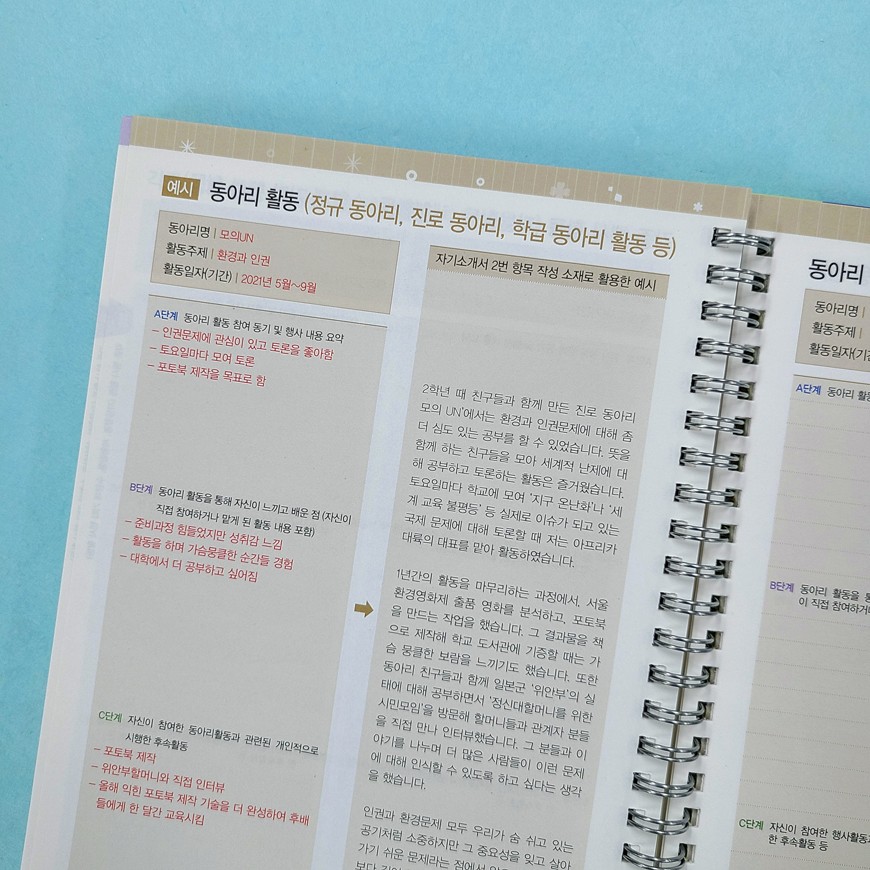 예시 동아리 활동 (정규 동아리, 진로 동아리, 학급 동아리 활동 등)
동아리명 | 모의UN
활동주제 | 환경과 인권
활동일자(기간) | 2021년 5월~9월
A단계 동아리 활동 참여 동기 및 행사 내용 요약
– 인권문제에 관심이 있고 토론을 좋아함
– 토요일마다 모여 토론
– 포토북 제작을 목표로 함
B단계 동아리 활동을 통해 자신이 느끼고 배운 점 (자신이
직접 참여하거나 맡게 된 활동 내용 포함)
– 준비과정 힘들었지만 성취감 느낌
– 활동을 하며 가슴뭉클한 순간들 경험
– 대학에서 더 공부하고 싶어짐
C단계 자신이 참여한 동아리활동과 관련된 개인적으로
시행한 후속활동
– 포토북 제작
– 위안부할머니와 직접 인터뷰
– 올해 익힌 포토북 제작 기술을 더 완성하여 후배
들에게 한 달간 교육시킴
자기소개서 2번 항목 작성 소재로 활용한 예시
2학년 때 친구들과 함께 만든 진로 동아리
모의 UN'에서는 환경과 인권문제에 대해 좀
더 심도 있는 공부를 할 수 있었습니다. 뜻을
함께 하는 친구들을 모아 세계적 난제에 대
해 공부하고 토론하는 활동은 즐거웠습니다.
토요일마다 학교에 모여 '지구 온난화'나 '세
계 교육 불평등' 등 실제로 이슈가 되고 있는
국제 문제에 대해 토론할 때 저는 아프리카
대륙의 대표를 맡아 활동하였습니다.
1년간의 활동을 마무리하는 과정에서, 서울
환경영화제 출품 영화를 분석하고, 포토북
을 만드는 작업을 했습니다. 그 결과물을 책
으로 제작해 학교 도서관에 기증할 때는 가
슴 뭉클한 보람을 느끼기도 했습니다. 또한
동아리 친구들과 함께 일본군 '위안부'의 실
태에 대해 공부하면서 '정신대할머니를 위한
시민모임'을 방문해 할머니들과 관계자 분들
을 직접 만나 인터뷰했습니다. 그 분들과 이
야기를 나누며 더 많은 사람들이 이런 문제
에 대해 인식할 수 있도록 하고 싶다는 생각
을 했습니다.
인권과 환경문제 모두 우리가 숨 쉬고 있는
공기처럼 소중하지만 그 중요성을 잊고 살아
가기 쉬운 문제라는 점에서
동아리
동아리명 |
활동주제 |
활동일자(기간)
A단계 동아리 활동
B단계 동아리 활동을 통
이 직접 참여하거나
C단계 자신이 참여한 행사활동과
한 후속활동 등